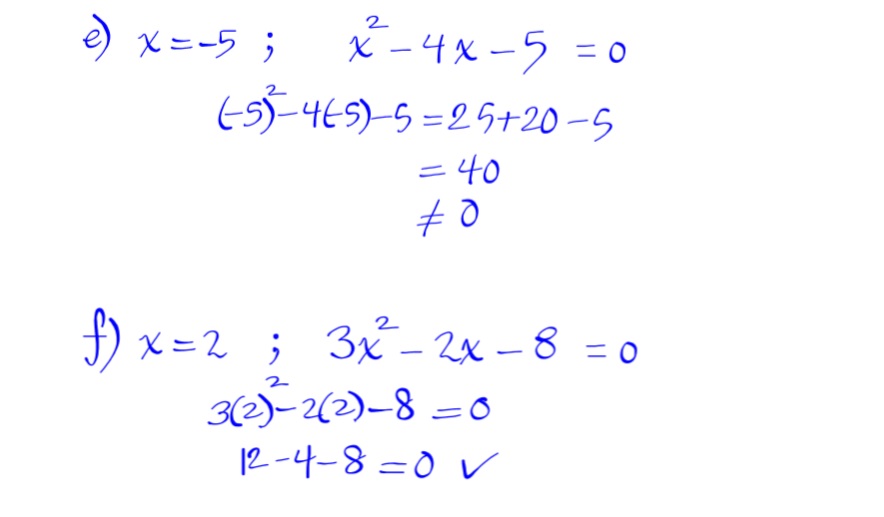 e) x = -5 ; x² - 4x - 5 = 0
(-5)² - 4(-5) - 5 = 25 + 20 - 5
= 40
≠ 0
f) x = 2 ; 3x² - 2x - 8 = 0
3(2)² - 2(2) - 8 = 0
12 - 4 - 8 = 0 ✓